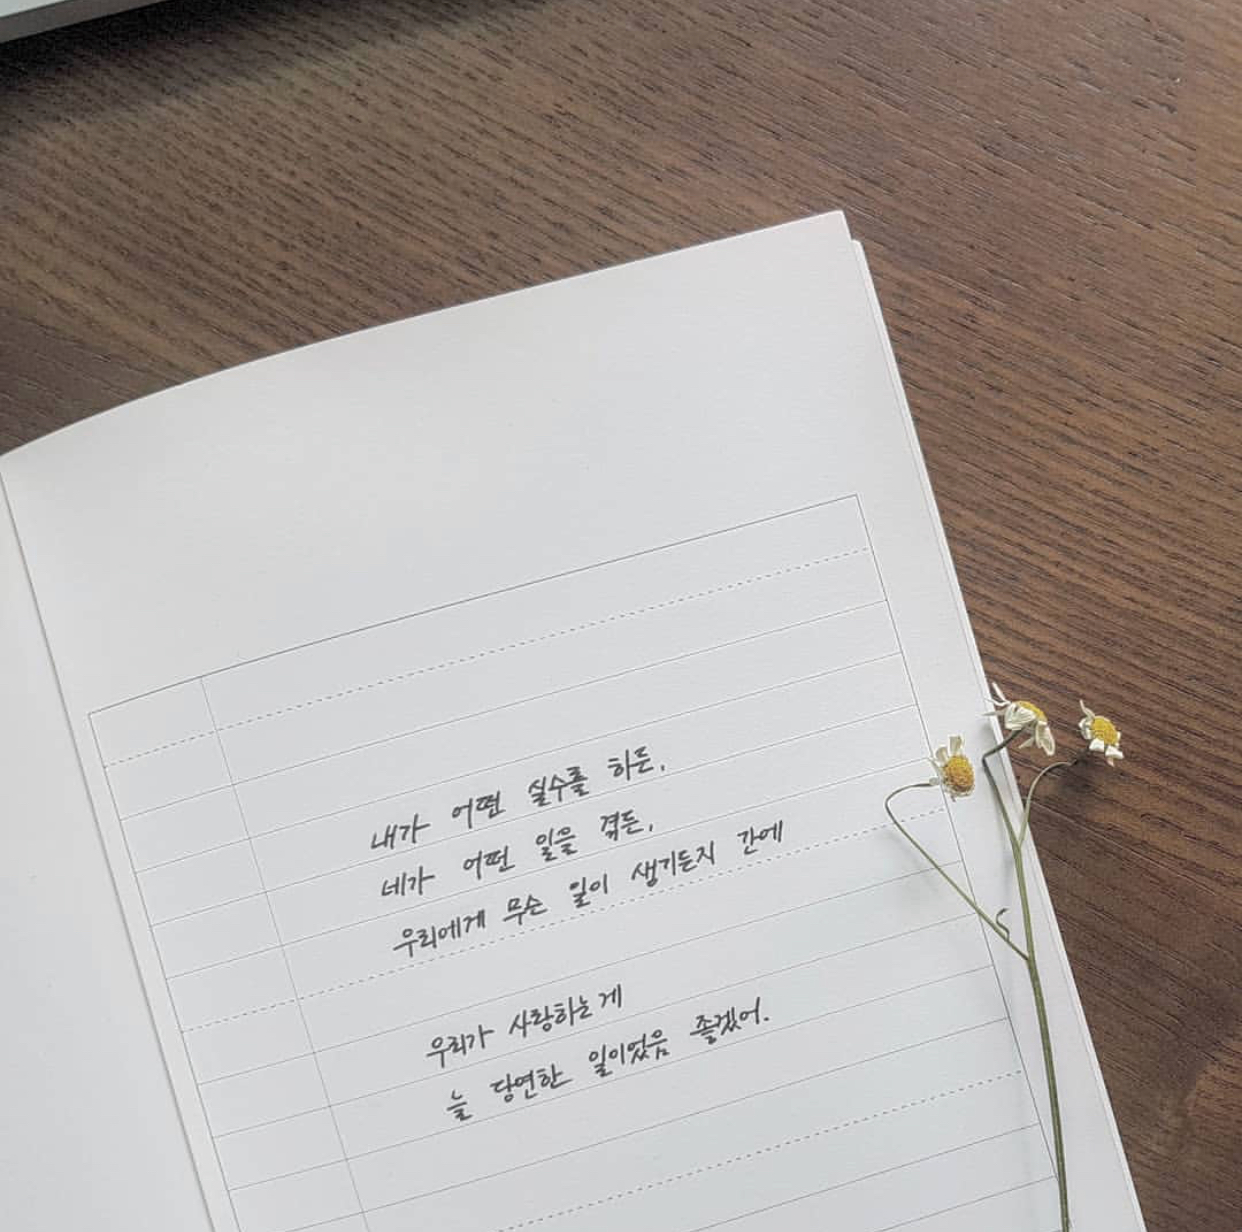 내가 어떤 실수를 하든,
네가 어떤 일을 겪든,
우리에게 무슨 일이 생기든지 간에
우리가 사랑하는 게
늘 당연한 일이었음 좋겠어.